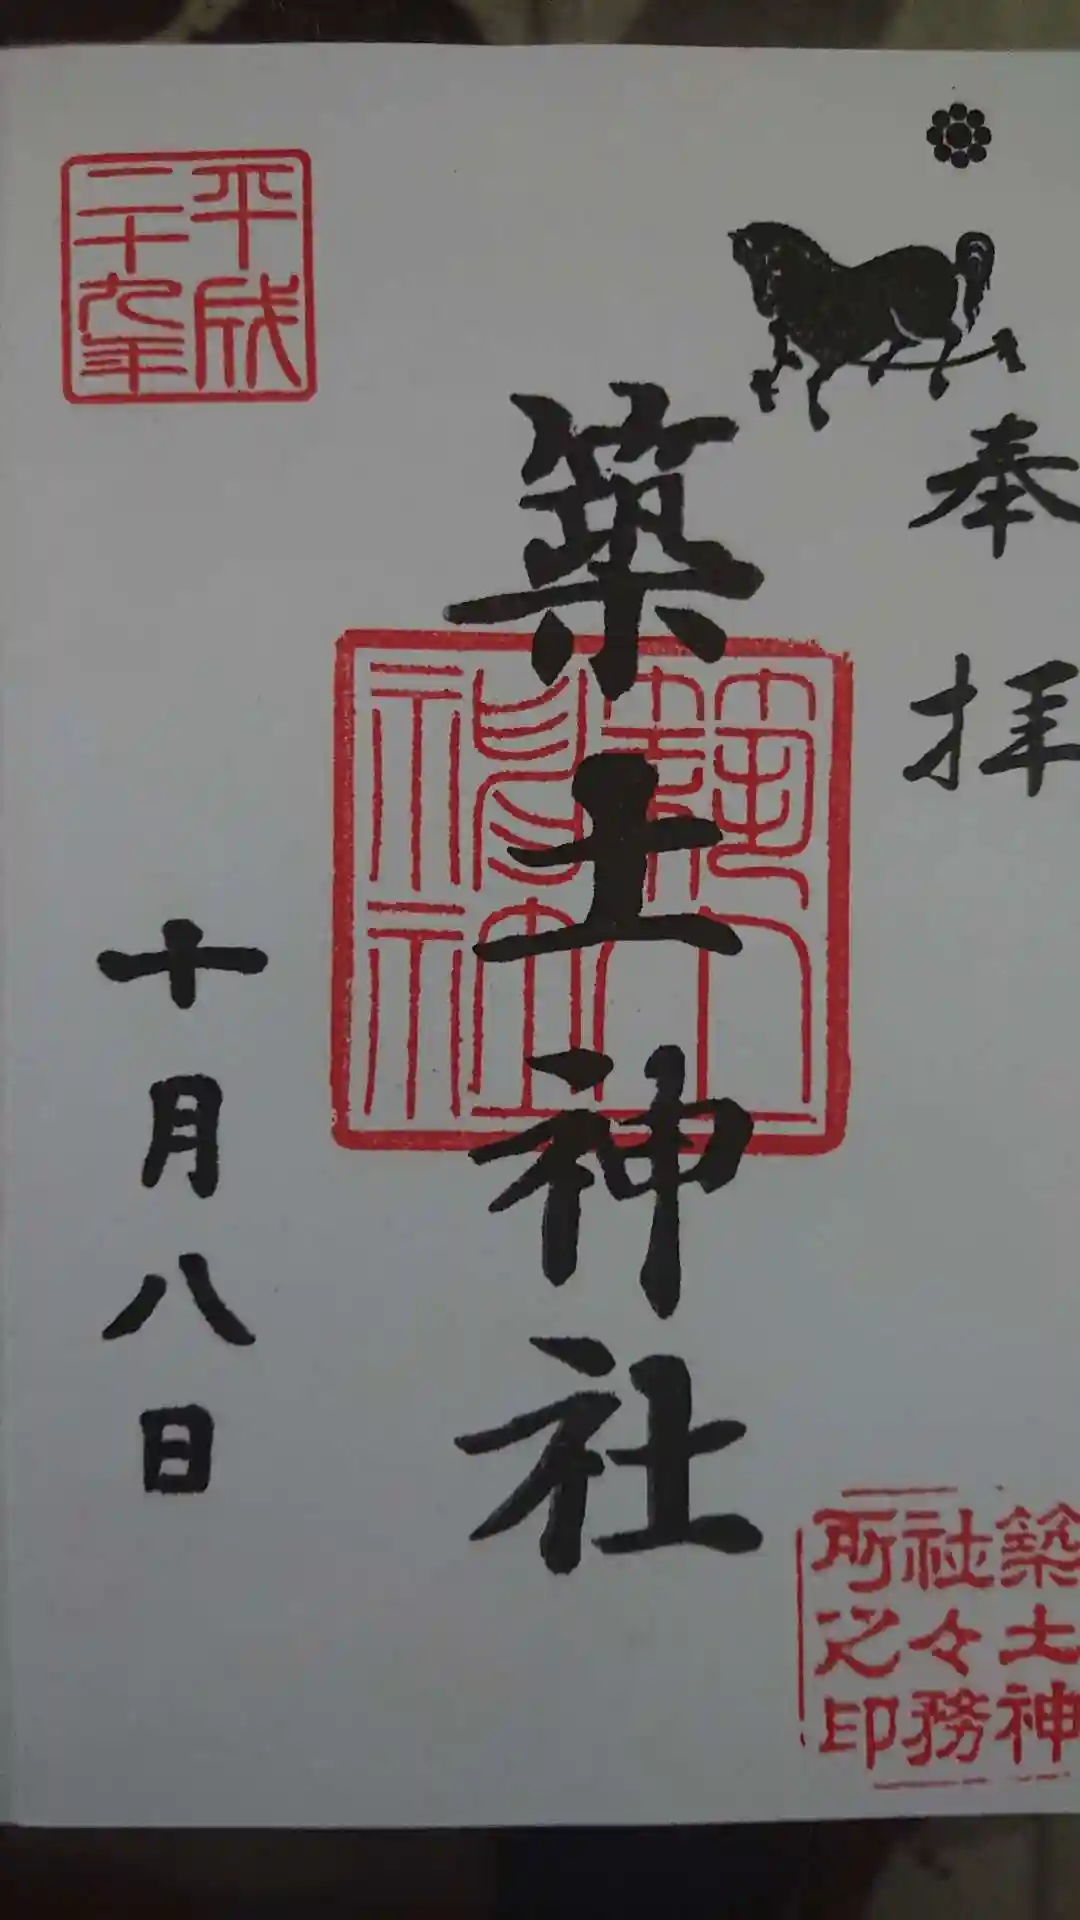 奉拝
築土神社
平成
二十九年
十月八日
築土神
社々務
所之印